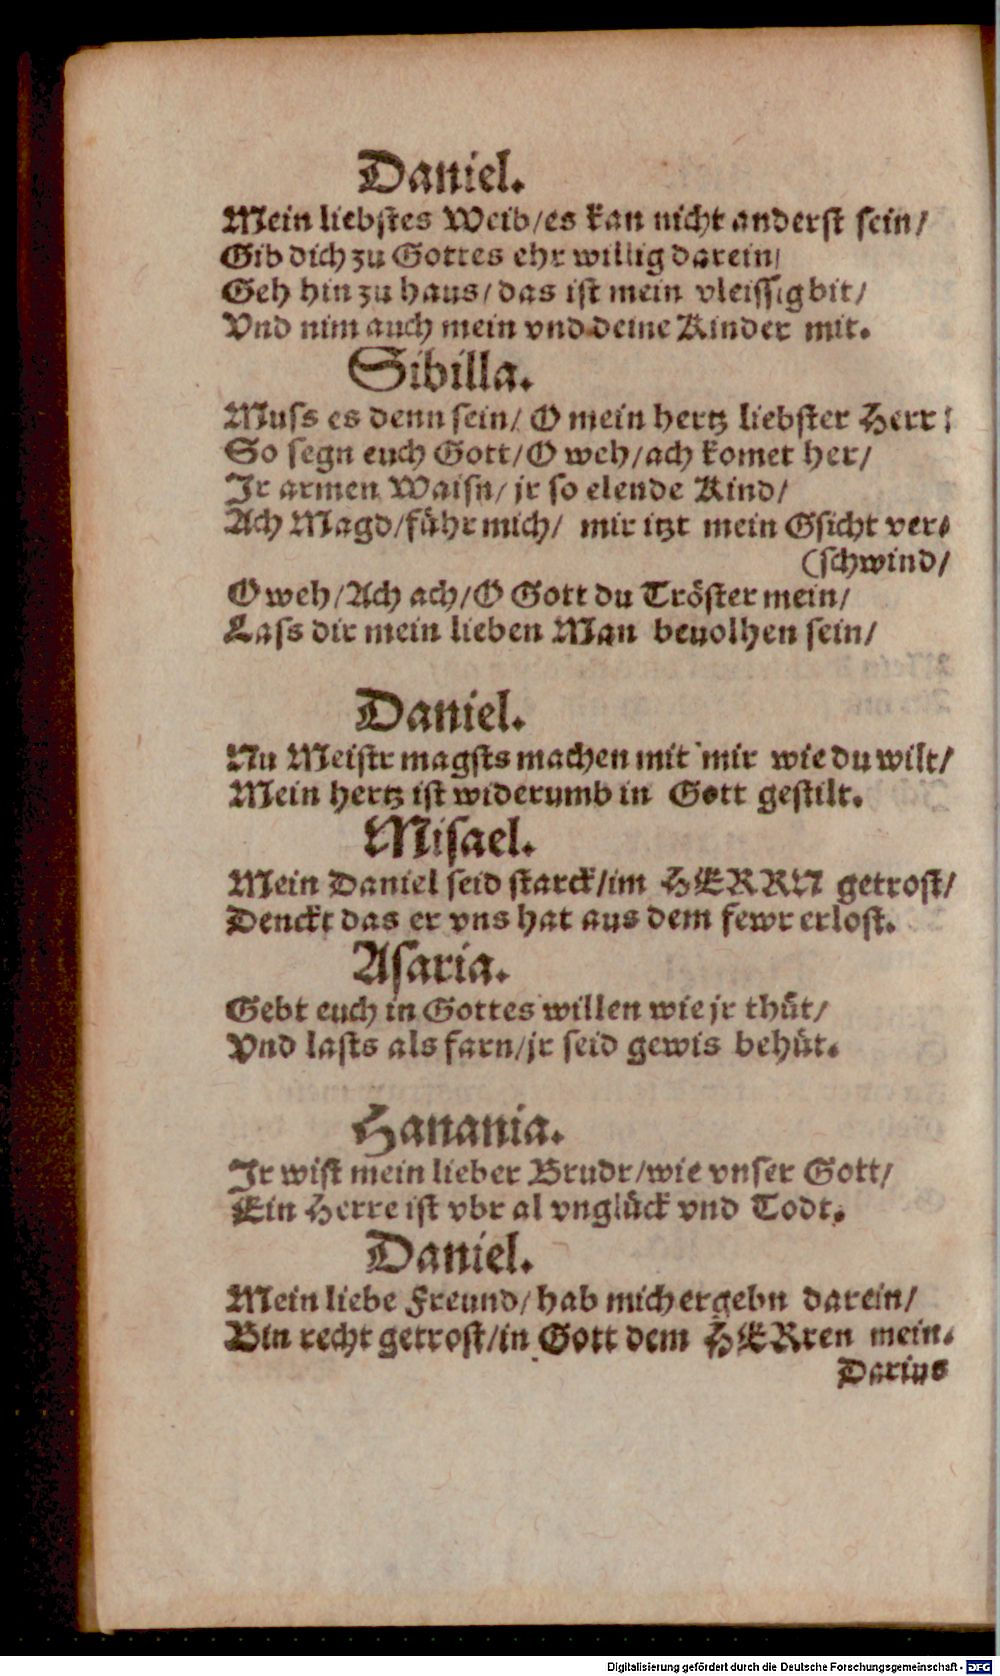 Daniel.
Mein liebſtes Weib/es kan nicht anderſt ſein/
Gib dich zu Gottes ehr willig darein/
Geh hin zu haus/das iſt mein vleiſſig bit/
Vnd nim auch mein vnd deine Kinder mit.
Sibilla.
Muſs es denn ſein/O mein hertz liebſter Herr!
So ſegn euch Gott/O weh/ach komet her/
Jr armen Waiſn/jr ſo elende Kind/
Ach Magd/führ mich/ mir itzt mein Gſicht ver⸗
(ſchwind/
O weh/Ach ach/O Gott du Tröſter mein/
Laſs dir mein lieben Man beuolhen ſein/
Daniel.
Nu Meiſtr magſts machen mit mir wie du wilt/
Mein hertz iſt widerumb in Gott geſtilt.
Miſael.
Mein Daniel ſeid ſtarck/im HERRN getroſt/
Denckt das er vns hat aus dem fewr erloſt.
Aſaria.
Gebt euch in Gottes willen wie jr thüt/
Vnd laſts als farn/jr ſeid gewis behüt.
Hanania.
Jr wiſt mein lieber Brudr/wie vnſer Gott/
Ein Herre iſt vbr al vnglück vnd Todt.
Daniel.
Mein liebe Freund/hab mich ergebn darein/
Bin recht getroſt/in Gott dem HERren mein.
Darius
Digitalisierung gefördert durch die Deutsche Forschungsgemeinschaft - DFG